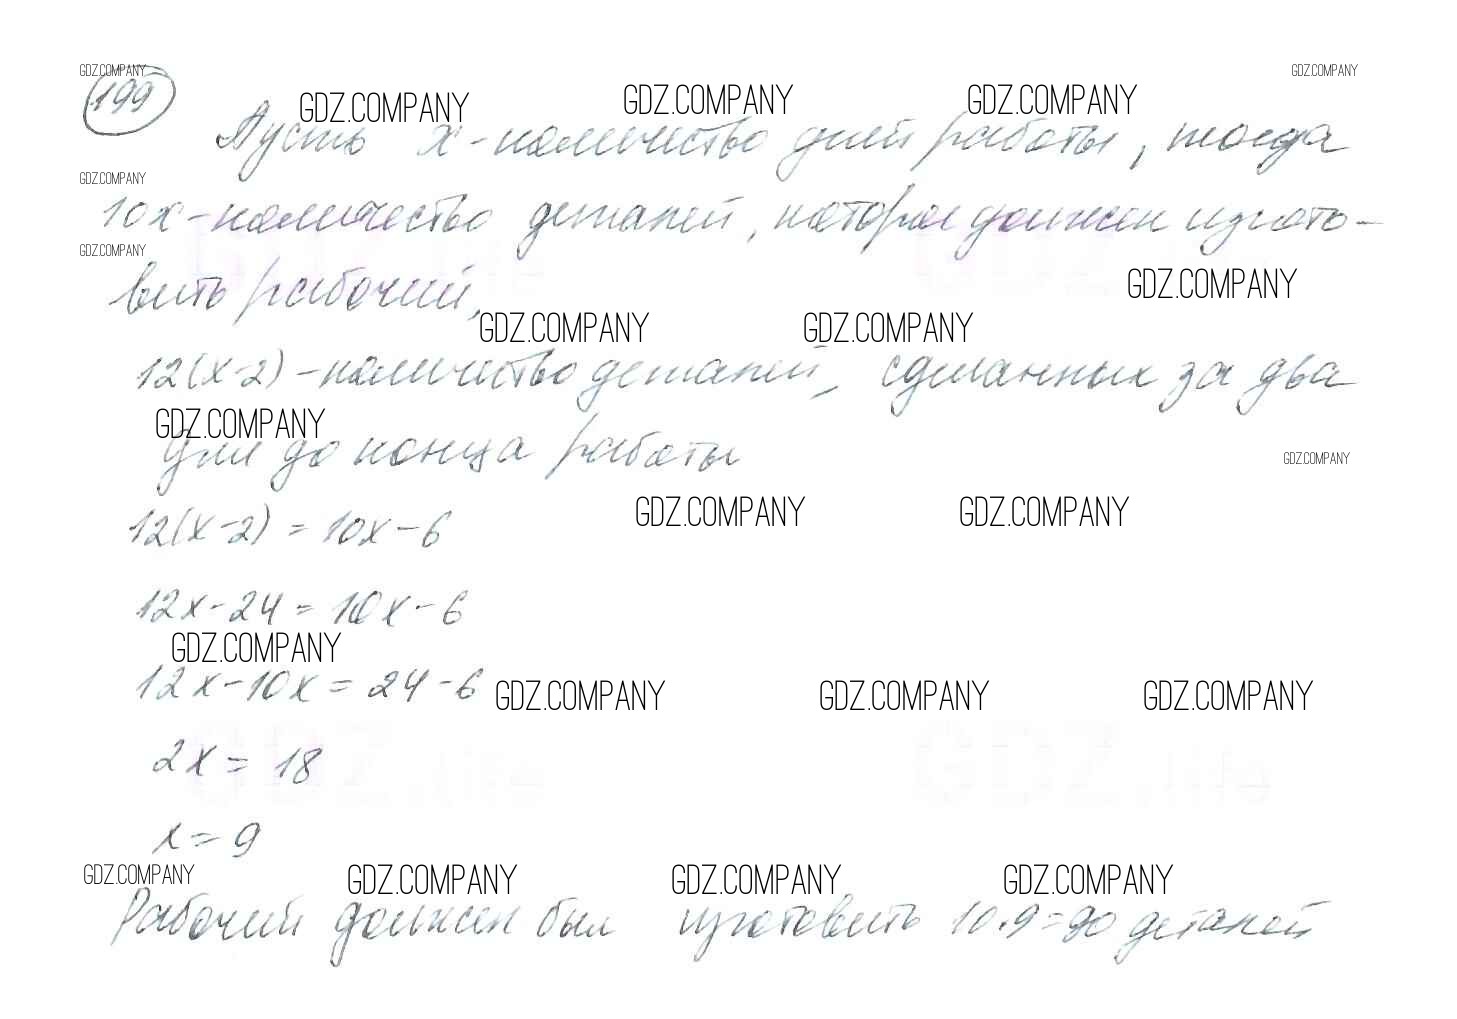 GDZ.COMPANY GDZ.COMPANY
199
GDZ.COMPANY GDZ.COMPANY GDZ.COMPANY
Пусть x - количество дней работы, тогда
GDZ.COMPANY
10x - количество деталей, которое должен изгото-
GDZ.COMPANY
вить рабочий,
GDZ.COMPANY
GDZ.COMPANY GDZ.COMPANY
12(x-2) - количество деталей, сделанных за два
GDZ.COMPANY
дня до конца работы
GDZ.COMPANY
12(x-2) = 10x - 6
GDZ.COMPANY GDZ.COMPANY
12x - 24 = 10x - 6
GDZ.COMPANY
12x - 10x = 24 - 6
GDZ.COMPANY GDZ.COMPANY GDZ.COMPANY
2x = 18
GDZ.life GDZ.life
x = 9
GDZ.COMPANY GDZ.COMPANY GDZ.COMPANY GDZ.COMPANY
Рабочий должен был изготовить 10·9=90 деталей